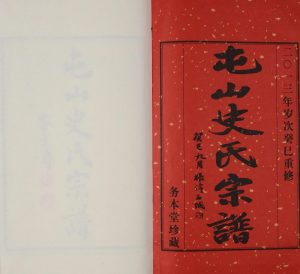 二〇一三年岁次癸巳重修
屯山史氏宗譜
癸巳九月
务本堂珍藏